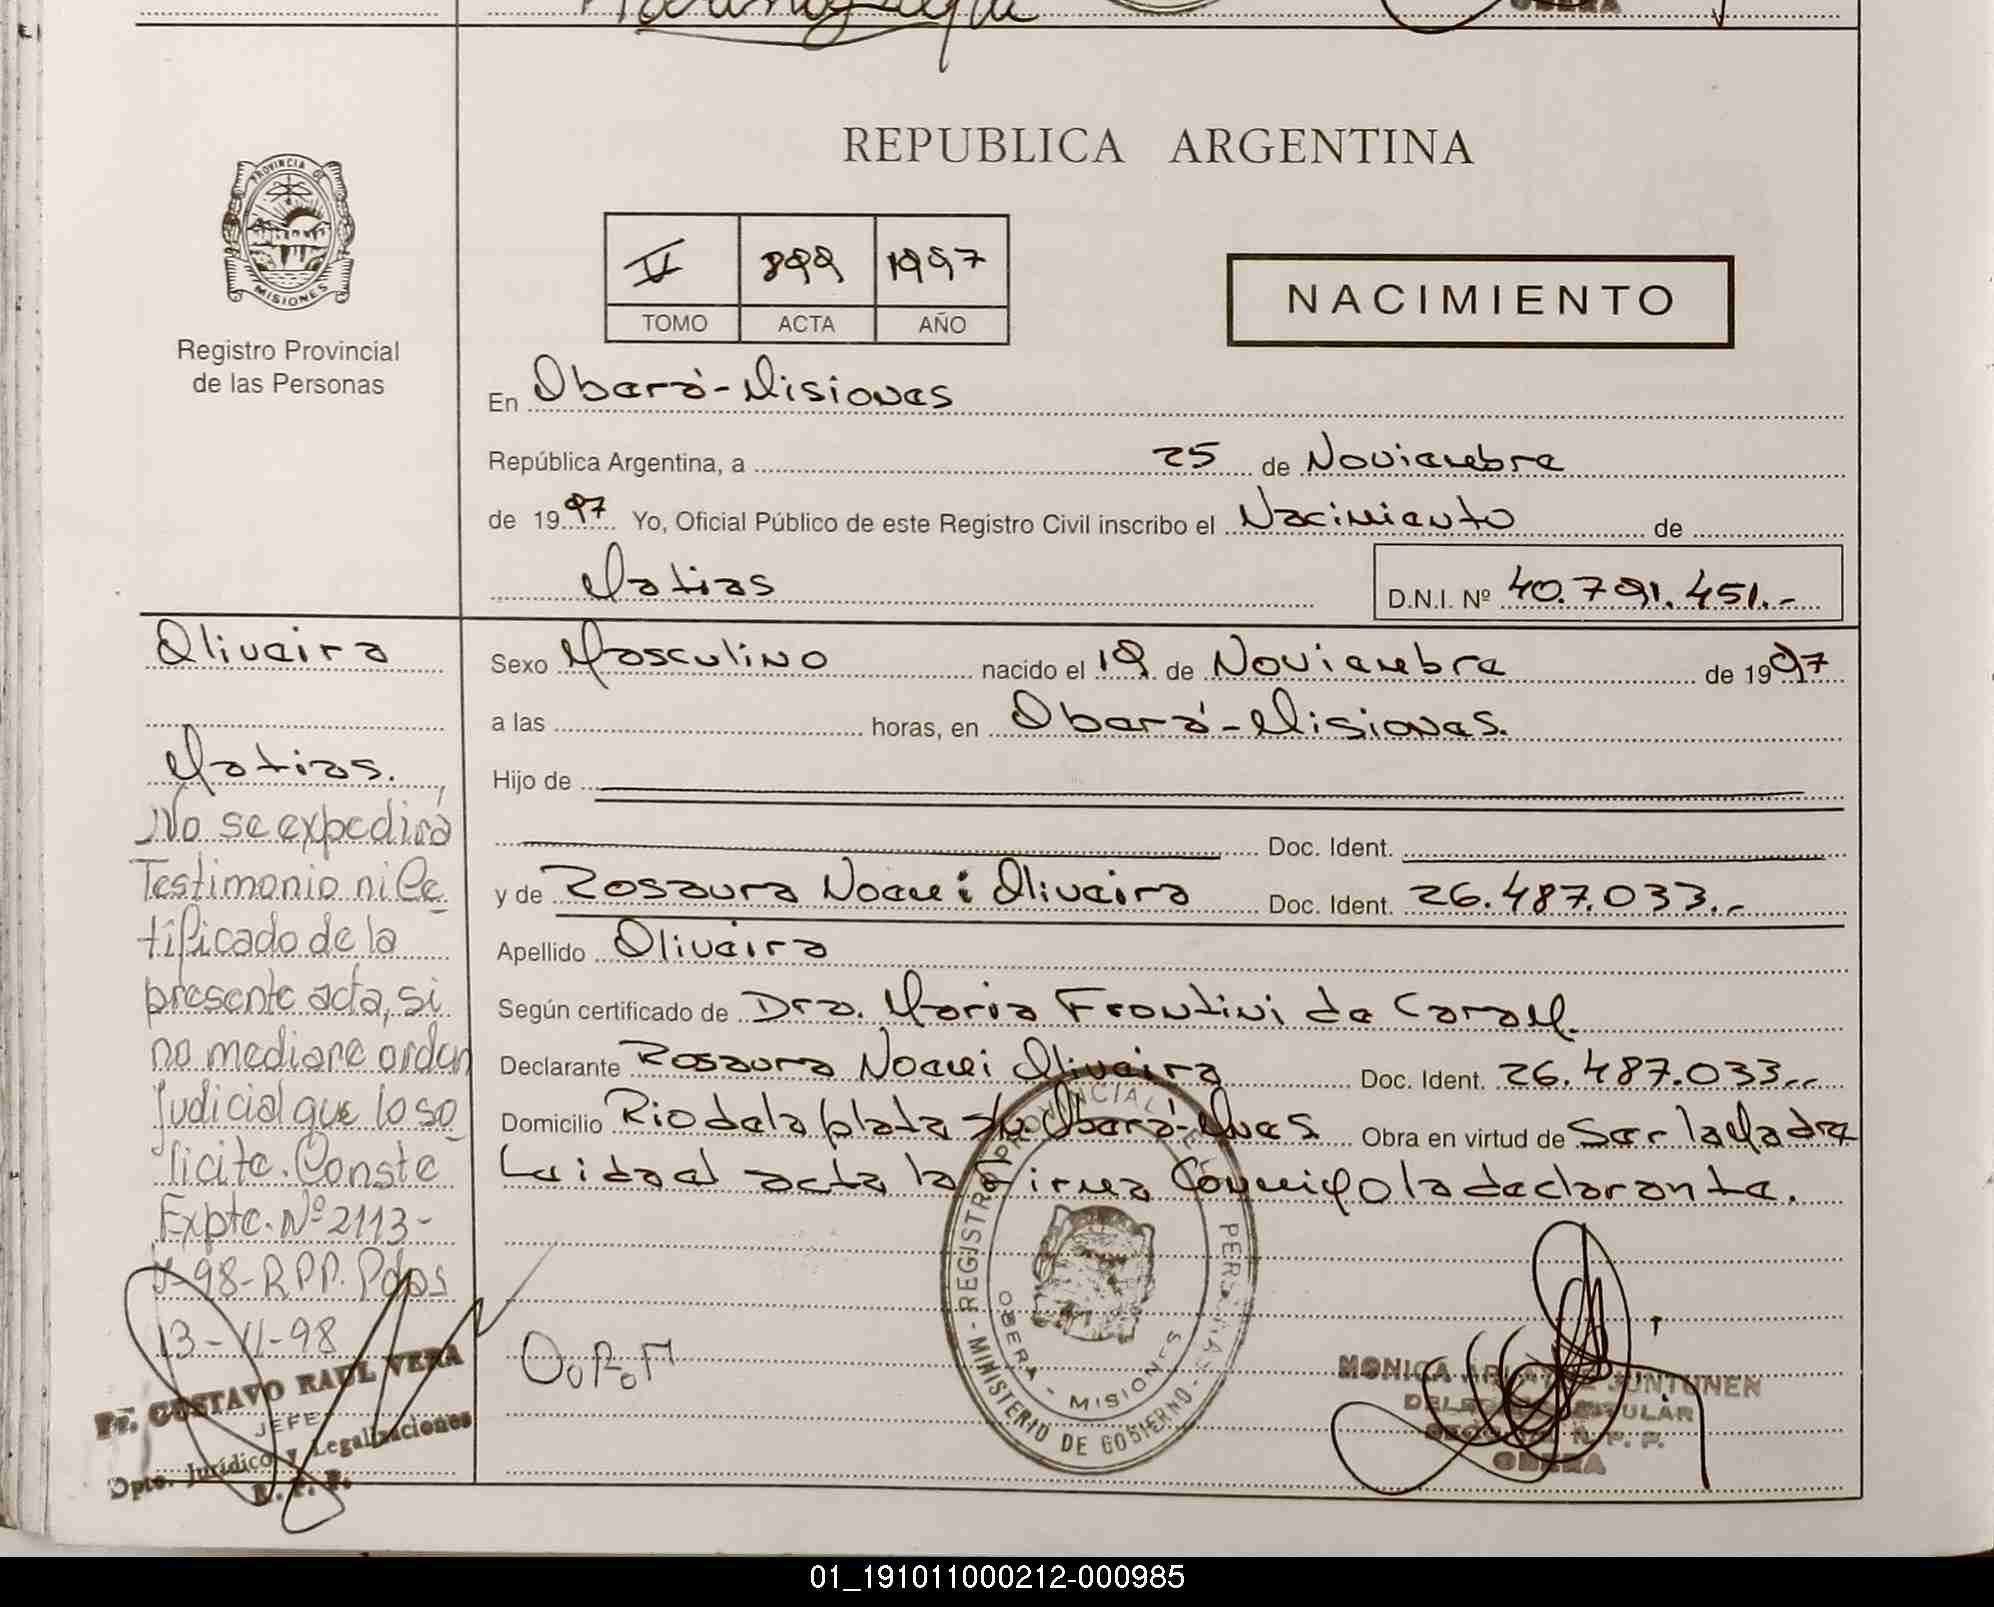 REPUBLICA ARGENTINA
PROVINCIA DE
MISIONES
Registro Provincial
de las Personas
II 899 1997
TOMO ACTA AÑO
NACIMIENTO
En Oberá-Misiones
República Argentina, a 25 de Noviembre
de 1997 Yo, Oficial Público de este Registro Civil inscribo el Nacimiento de
Matias D.N.I. Nº 40.791.451.-
Oliveira
Matias.
No se expedirá
Testimonio ni Ce
tificado de la
presente acta, si
no mediare orden
judicial que lo so
licite. Conste
Expte. Nº 2113-
98-R.P.P. Pdas
13-VI-98
Dr. GUSTAVO RAUL VERA
JEFE
Dpto. Jurídico y Legalizaciones
R. P. P.
Sexo Masculino nacido el 19 de Noviembre de 1997
a las horas, en Oberá-Misiones.
Hijo de
Doc. Ident.
y de Rosaura Noemi Oliveira Doc. Ident. 26.487.033.-
Apellido Oliveira
Según certificado de Dra. Maria Frontini de
Declarante Rosaura Noemi Oliveira Doc. Ident. 26.487.033.-
Domicilio Rio de la plata s/n Oberá-Mnes. Obra en virtud de Ser la Madre
Leida el acta la firma Conmigo la declarante.
REGISTRO PROVINCIAL DE LAS PERSONAS - MINISTERIO DE GOBIERNO -
OBERA - MISIONES
MONICA JUNTUNEN
TITULAR
R. P. P.
OBERA
01_191011000212-000985